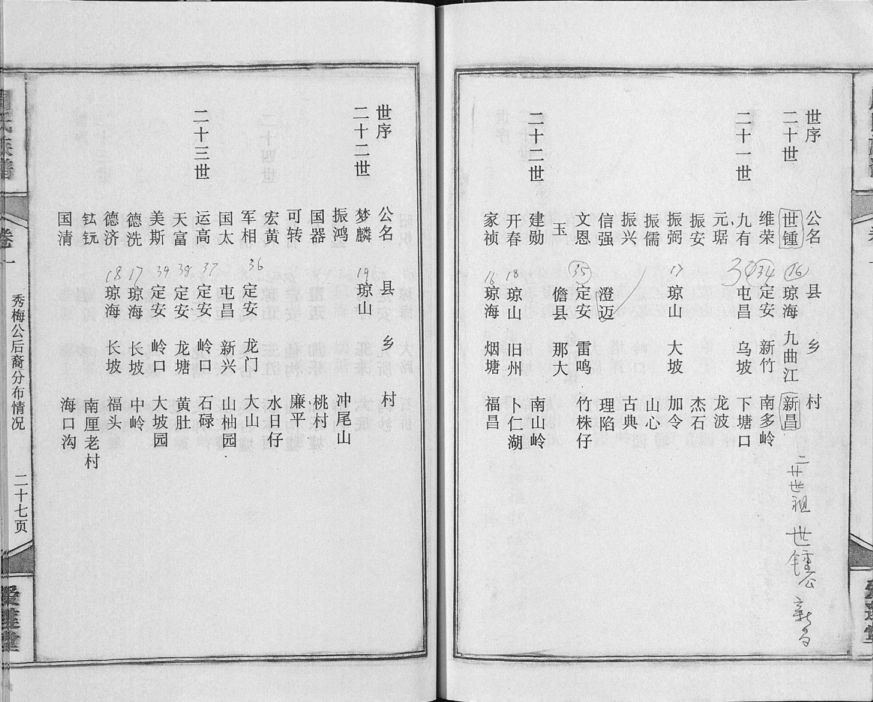 世序 公名 县 乡 村
二十世 世锺 26 琼海 九曲江 新昌
维荣 34 定安 新竹 南多岭
二十一世 九有 屯昌 乌坡 下塘口
元琚 龙波
振安 杰石
振弼 17 琼山 大坡 加令
振儒 山心
振兴 古典
信强 澄迈 理陷
文恩 35 定安 雷鸣 竹株仔
玉 儋县 那大
二十二世 建勋 南山岭
开春 18 琼山 旧州 卜仁湖
家祯 18 琼海 烟塘 福昌
二廿世祖 世锺公 新昌
世序 公名 县 乡 村
二十二世 梦麟 19 琼山 冲尾山
振鸿
国器 桃村
可转 廉平
宏黄 水日仔
军相 36 定安 龙门 大山
国太 屯昌 新兴 山柚园
二十三世 运高 37 定安 岭口 石碌
天富 38 定安 龙塘 黄肚
美斯 39 定安 岭口 大坡园
德洗 17 琼海 中岭
德济 18 琼海 长坡 福头
钛钪 南厘老村
国清 海口沟
卷一
秀梅公后裔分布情况
二十七页
爱莲堂